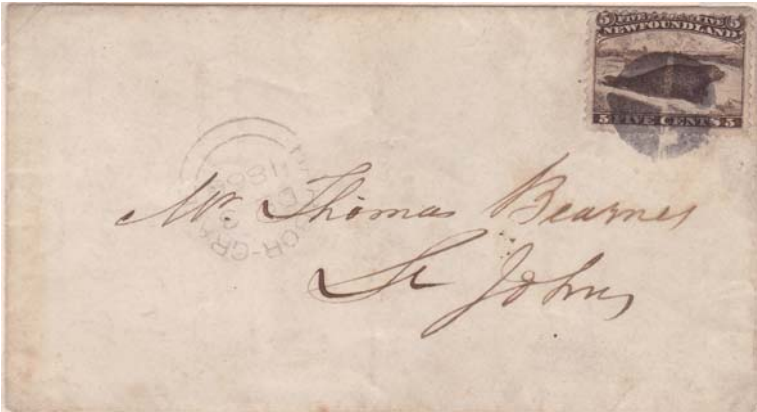 5 FIVE FIVE 5
NEWFOUNDLAND
5 FIVE CENTS 5
Mr. Thomas Bearnes
St Johns